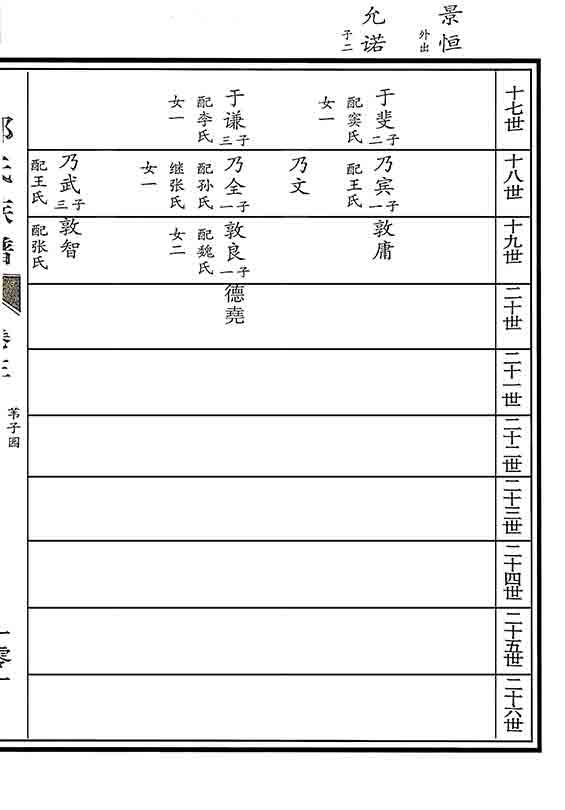 景恒
外出
允诺
子二
十七世
于斐
子二
配窦氏
女一
于谦
子三
配李氏
女一
十八世
乃宾
子一
配王氏
乃文
乃全
子一
配孙氏
继张氏
女一
乃武
子三
配王氏
十九世
敦庸
敦良
子一
配魏氏
女二
敦智
配张氏
二十世
德堯
二十一世
二十二世
二十三世
二十四世
二十五世
二十六世
苇子园